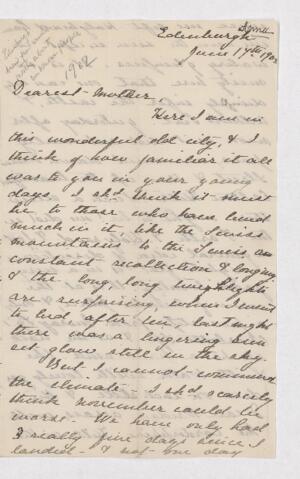 Edinburgh
June 17th 1902
1902
Dearest Mother,
Here I am in
this wonderful old city, & I
think of how familiar it all
was to you in your young
days. I shd. think it must
be to those who have lived
much in it, like the Swiss
mountains to the Swiss a
constant recollection & longing
& the long long twilights
are surprising, when I went
to bed after ten, last night
there was a lingering sun
set glow still in the sky.
But I cannot commend
the climate - I shd scarcely
think November could be
worse. We have only had
3 really fine days since I
landed - & not one day